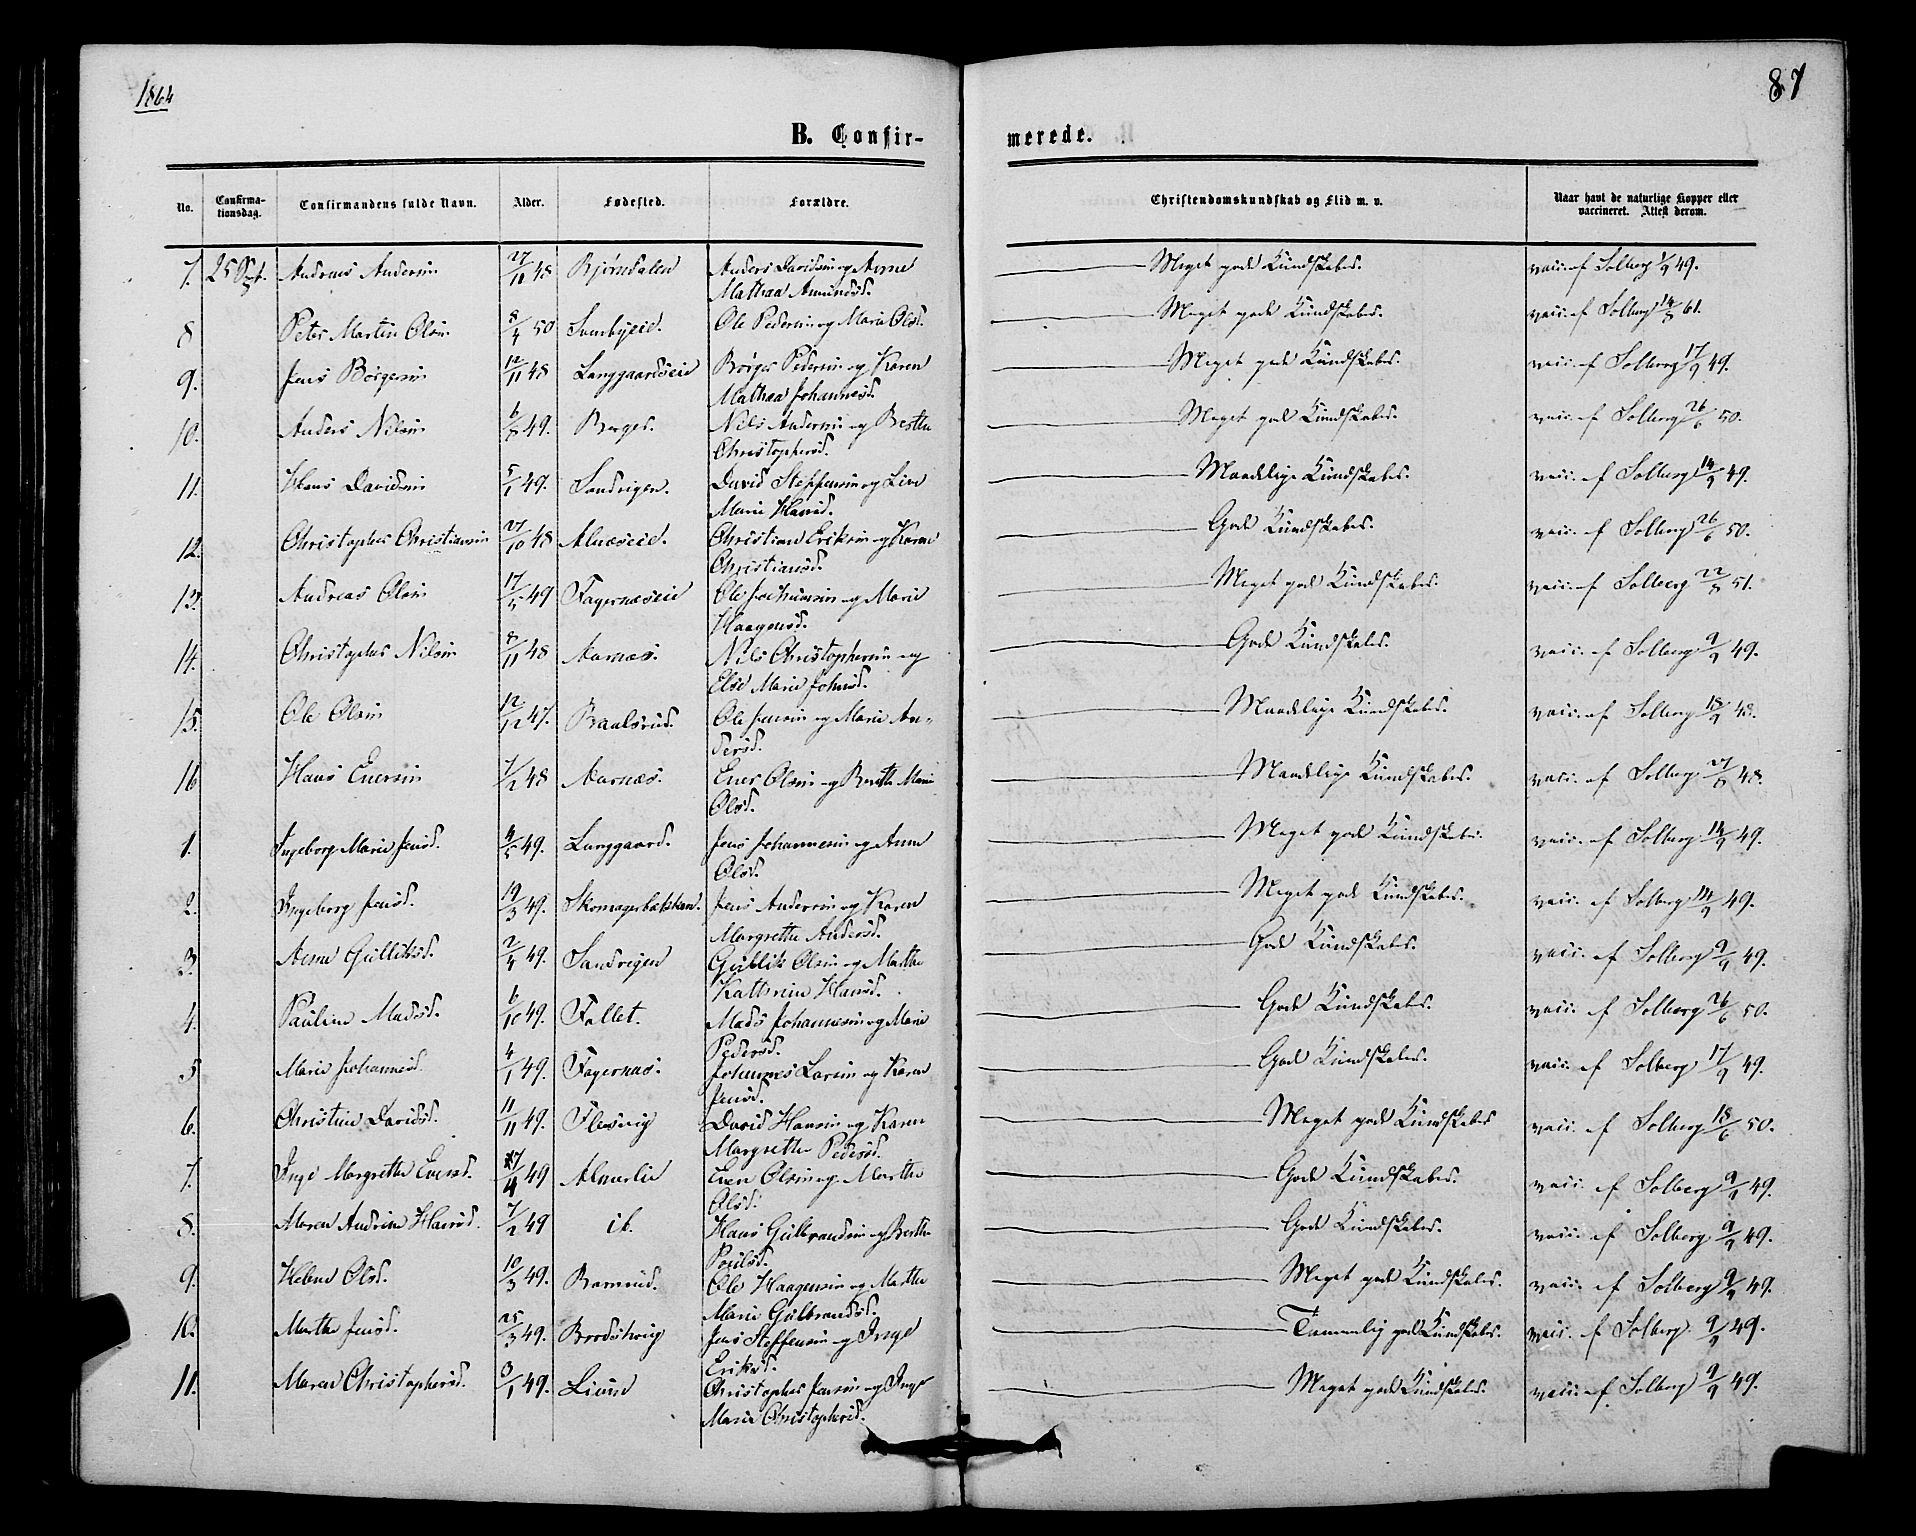 1864
87
B. Confirmerede.
No. Confirmationsdag. Confirmandens fulde Navn. Alder. Fødested. Forældre. Christendomskundskab og Flid m. v. Naar havt de naturlige Kopper eller vaccineret. Attest derom.
7. 25 Sept. Andreas Andersen 27/11 48 Bjørndalen Anders Davidsen og Anne Meget gode Kundskaber. vacc. af Solberg 49.
Mathea Amundsd.
8 Peter Martin Olsen 8/4 50 Ole Pedersen og Marie Olsd. Meget gode Kundskaber. vacc. af Solberg 14/8 61.
9. Jens Börgesen 12/11 48 Langgaardseie Börge Pedersen og Karen Meget gode Kundskaber. vacc. af Solberg 17/9 49.
Mathea Johannesd.
10. Anders Nilsen 6/8 49. Berger. Nils Andersen og Berthe Meget god Kundskaber. vacc. af Solberg 26/6 50.
Christophersd.
11. Hans Davidsen 5/1 49. Sandvigen. David Steffensen og Live Maadelige Kundskaber. vacc. af Solberg 14/9 49.
Marie Hansd.
12. Christopher Christiansen 27/10 48 Alnæseie. Christian Eriksen og Karen Gode Kundskaber. vacc. af Solberg 26/6 50.
Christiansd.
13. Andreas Olsen 17/5 49 Fagernæseie Ole Johannesen og Marie Meget god Kundskaber. vacc. af Solberg 22/8 51.
Haagensd.
14. Christopher Nilsen 8/11 48 Aarnæs. Nils Christophersen og Gode Kundskaber. vacc. af Solberg 9/9 49.
Else Marie Johnsd.
15. Ole Olsen 12/12 47. Baalsrud. Ole Jensen og Marie An- Maadelige Kundskaber. vacc. af Solberg 18/9 48.
dersd.
16 Hans Enersen 7/12 48 Aarnæs. Ener Olsen og Berthe Marie Maadelige Kundskaber. vacc. af Solberg 27/8 48.
Olsd.
1. Ingeborg Marie Jensd. 4/5 49. Langgaard. Jens Johannesen og Anne Meget gode Kundskaber. vacc. af Solberg 14/9 49.
Olsd.
2. Ingeborg Jensd. 19/3 49. Skomagerbakken. Jens Andersen og Karen Meget gode Kundskaber. vacc. af Solberg 14/9 49.
Margrethe Andersd.
3. Anne Gulliksd. 2/4 49. Sandvigen Gullik Olsen og Marthe God Kundskaber. vacc. af Solberg 9/9 49.
Kathrine Hansd.
4. Pauline Madsd. 6/10 49. Fallet. Mads Johannesen og Marie Gode Kundskaber. vacc. af Solberg 26/6 50.
Pedersd.
5 Marie Johannesd. 4/1 49. Fagernæs. Johannes Larsen og Karen God Kundskaber. vacc. af Solberg 17/9 49.
Jensd.
6. Christine Davidsd. 11/11 49. Flesvig David Hansen og Karen Meget gode Kundskaber vacc. af Solberg 18/6 50.
Margrethe Pedersd.
7. Inge Margrethe Enersd. 17/4 49 Almerlie Ener Olsen og Marthe Gode Kundskaber. vacc. af Solberg 9/9 49.
Olsd.
8. Maren Andrine Hansd. 7/2 49 ib. Hans Gulbrandsen og Berthe Gode Kundskaber. vacc. af Solberg 9/9 49.
Poulsd.
9. Helene Olsd. 10/3 49. Ole Haagensen og Marthe Meget gode Kundskaber. vacc. af Solberg 9/9 49.
Marie Gulbrandsd.
10. Marthe Jensd. 25/3 49. Jens Steffensen og Inge Temmelig god Kundskaber. vacc. af Solberg. 9/9 49.
Eriksd.
11. Maren Christophersd. 3/1 49. Christopher Jensen og Inge Meget god Kundskaber. vacc. af Solberg 9/9 49.
Marie Christophersd.